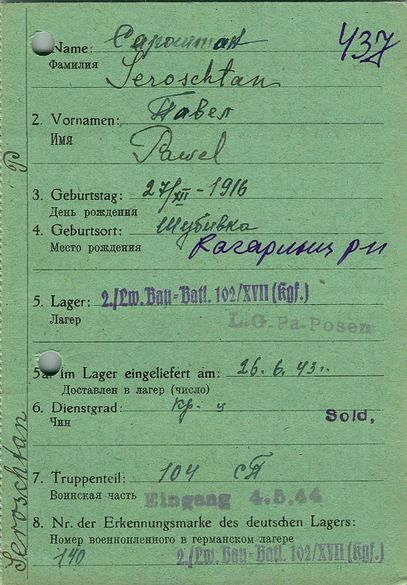 437
Name: Сарочтан
Фамилия
Seroschtan
2. Vornamen: Павел
Имя
Pawel
3. Geburtstag: 27/XII-1916
День рождения
4. Geburtsort: Шубивка
Место рождения
5. Lager: 2./Lw. Bau=Batl. 102/XVII (Kgf.)
Лагер
L.G.Pa-Posen
5a. Im Lager eingeliefert am: 26. 6. 43 г.
Доставлен в лагер (число)
6. Dienstgrad: кр-ц
Чин
Sold,
7. Truppenteil: 104 сп
Воинская часть
Eingang 4.5.44
8. Nr. der Erkennungsmarke des deutschen Lagers:
Номер военнопленного в германском лагере
140
2./Lw. Bau=Batl. 102/XVII (Kgf.)
Seroschtan P